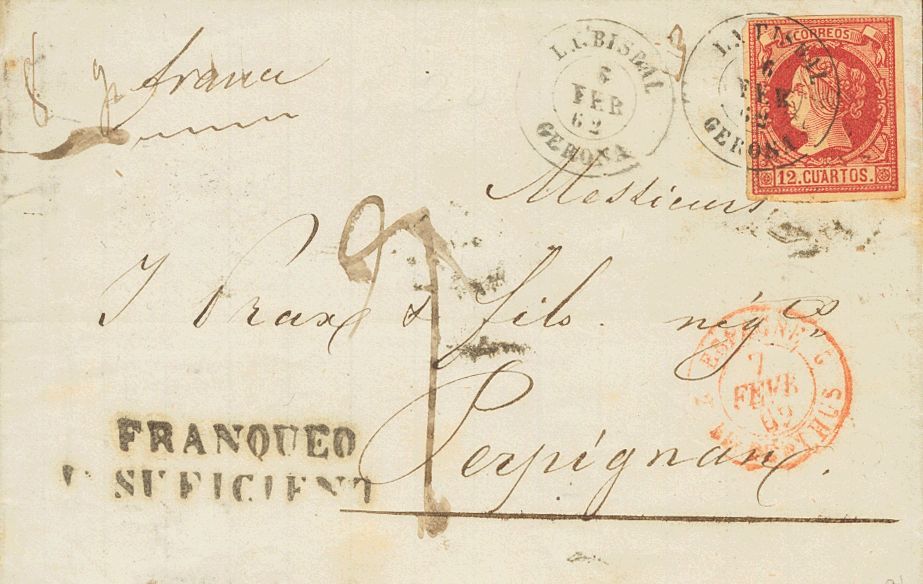 LA BISBAL
6
FEB
62
GERONA
LA BISBAL
6
FEB
62
GERONA
CORREOS
12. CUARTOS.
Messieurs
J Prax & fils négts
Perpignan.
2 ESPAGNE 2
7
FEVR
62
LE PERTHUS
FRANQUEO
SUFICIENT